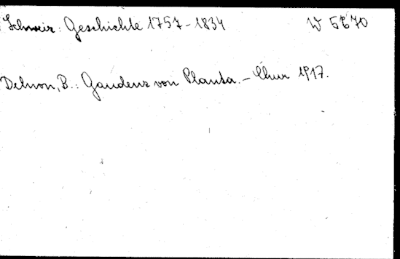 Schweiz: Geschichte 1757-1834 W 5670
Delnon, B.: Gaudenz von Planta. - Chur 1917.